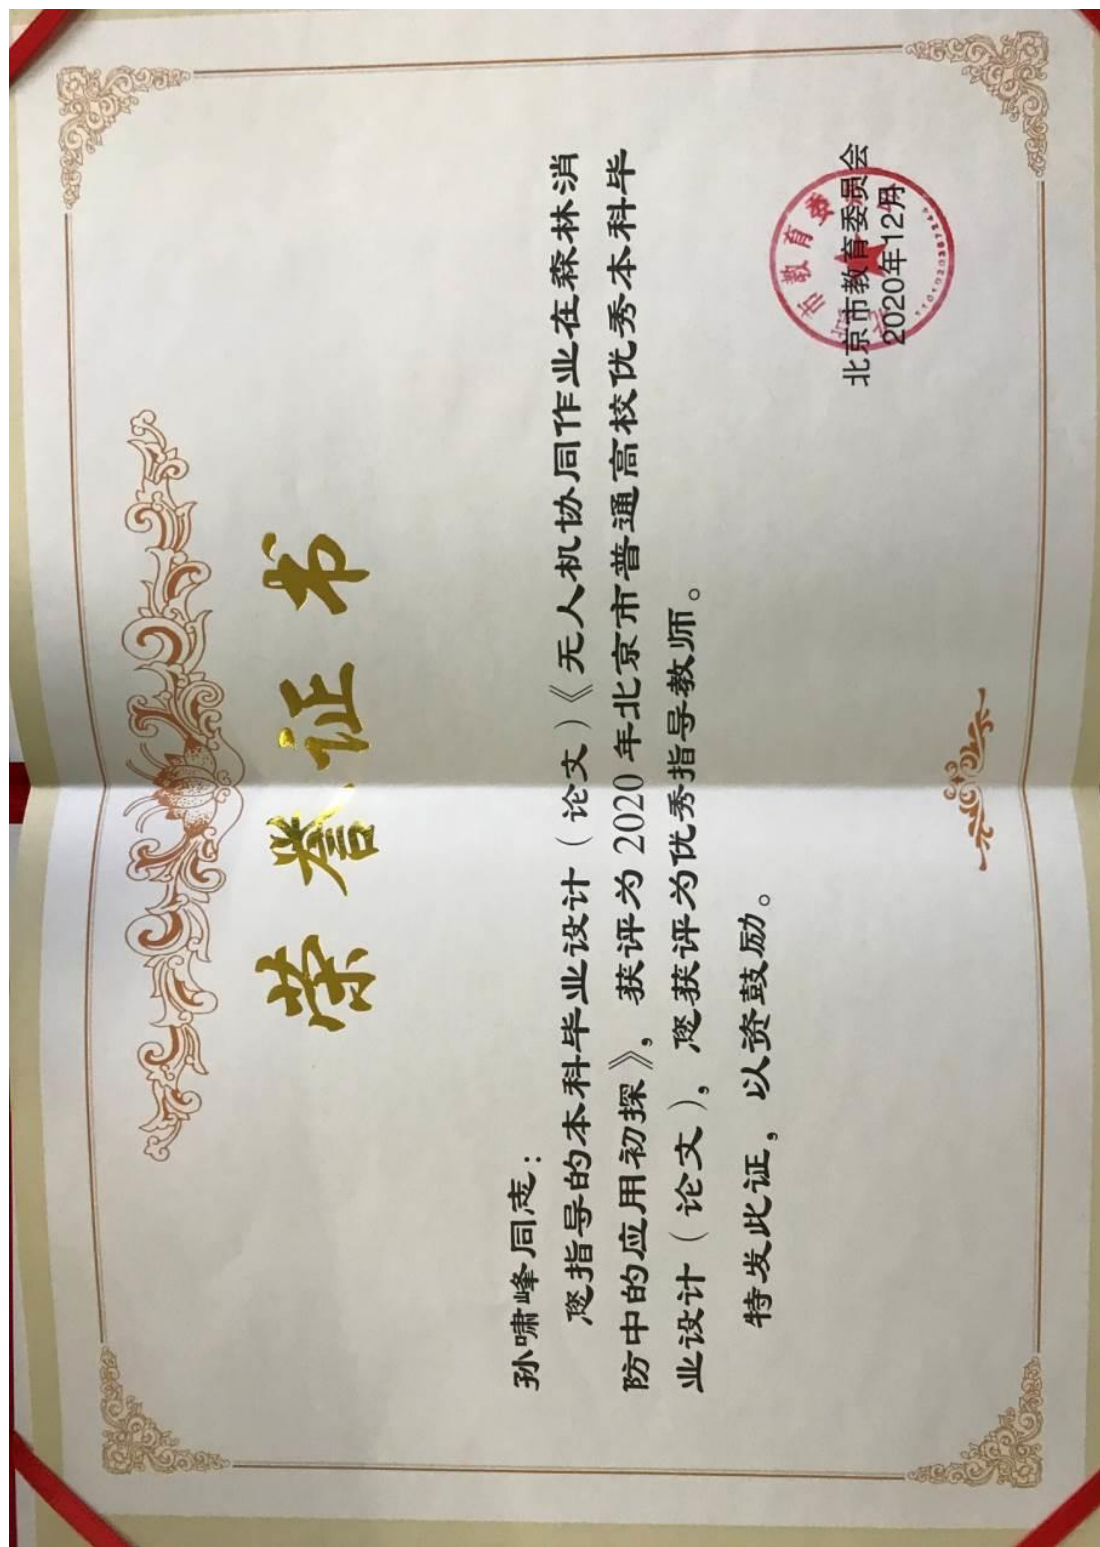 荣誉证书
孙啸峰同志：
您指导的本科毕业设计（论文）《无人机协同作业在森林消
防中的应用初探》，获评为2020年北京市普通高校优秀本科毕
业设计（论文），您获评为优秀指导教师。
特发此证，以资鼓励。
北京市教育委员会
2020年12月